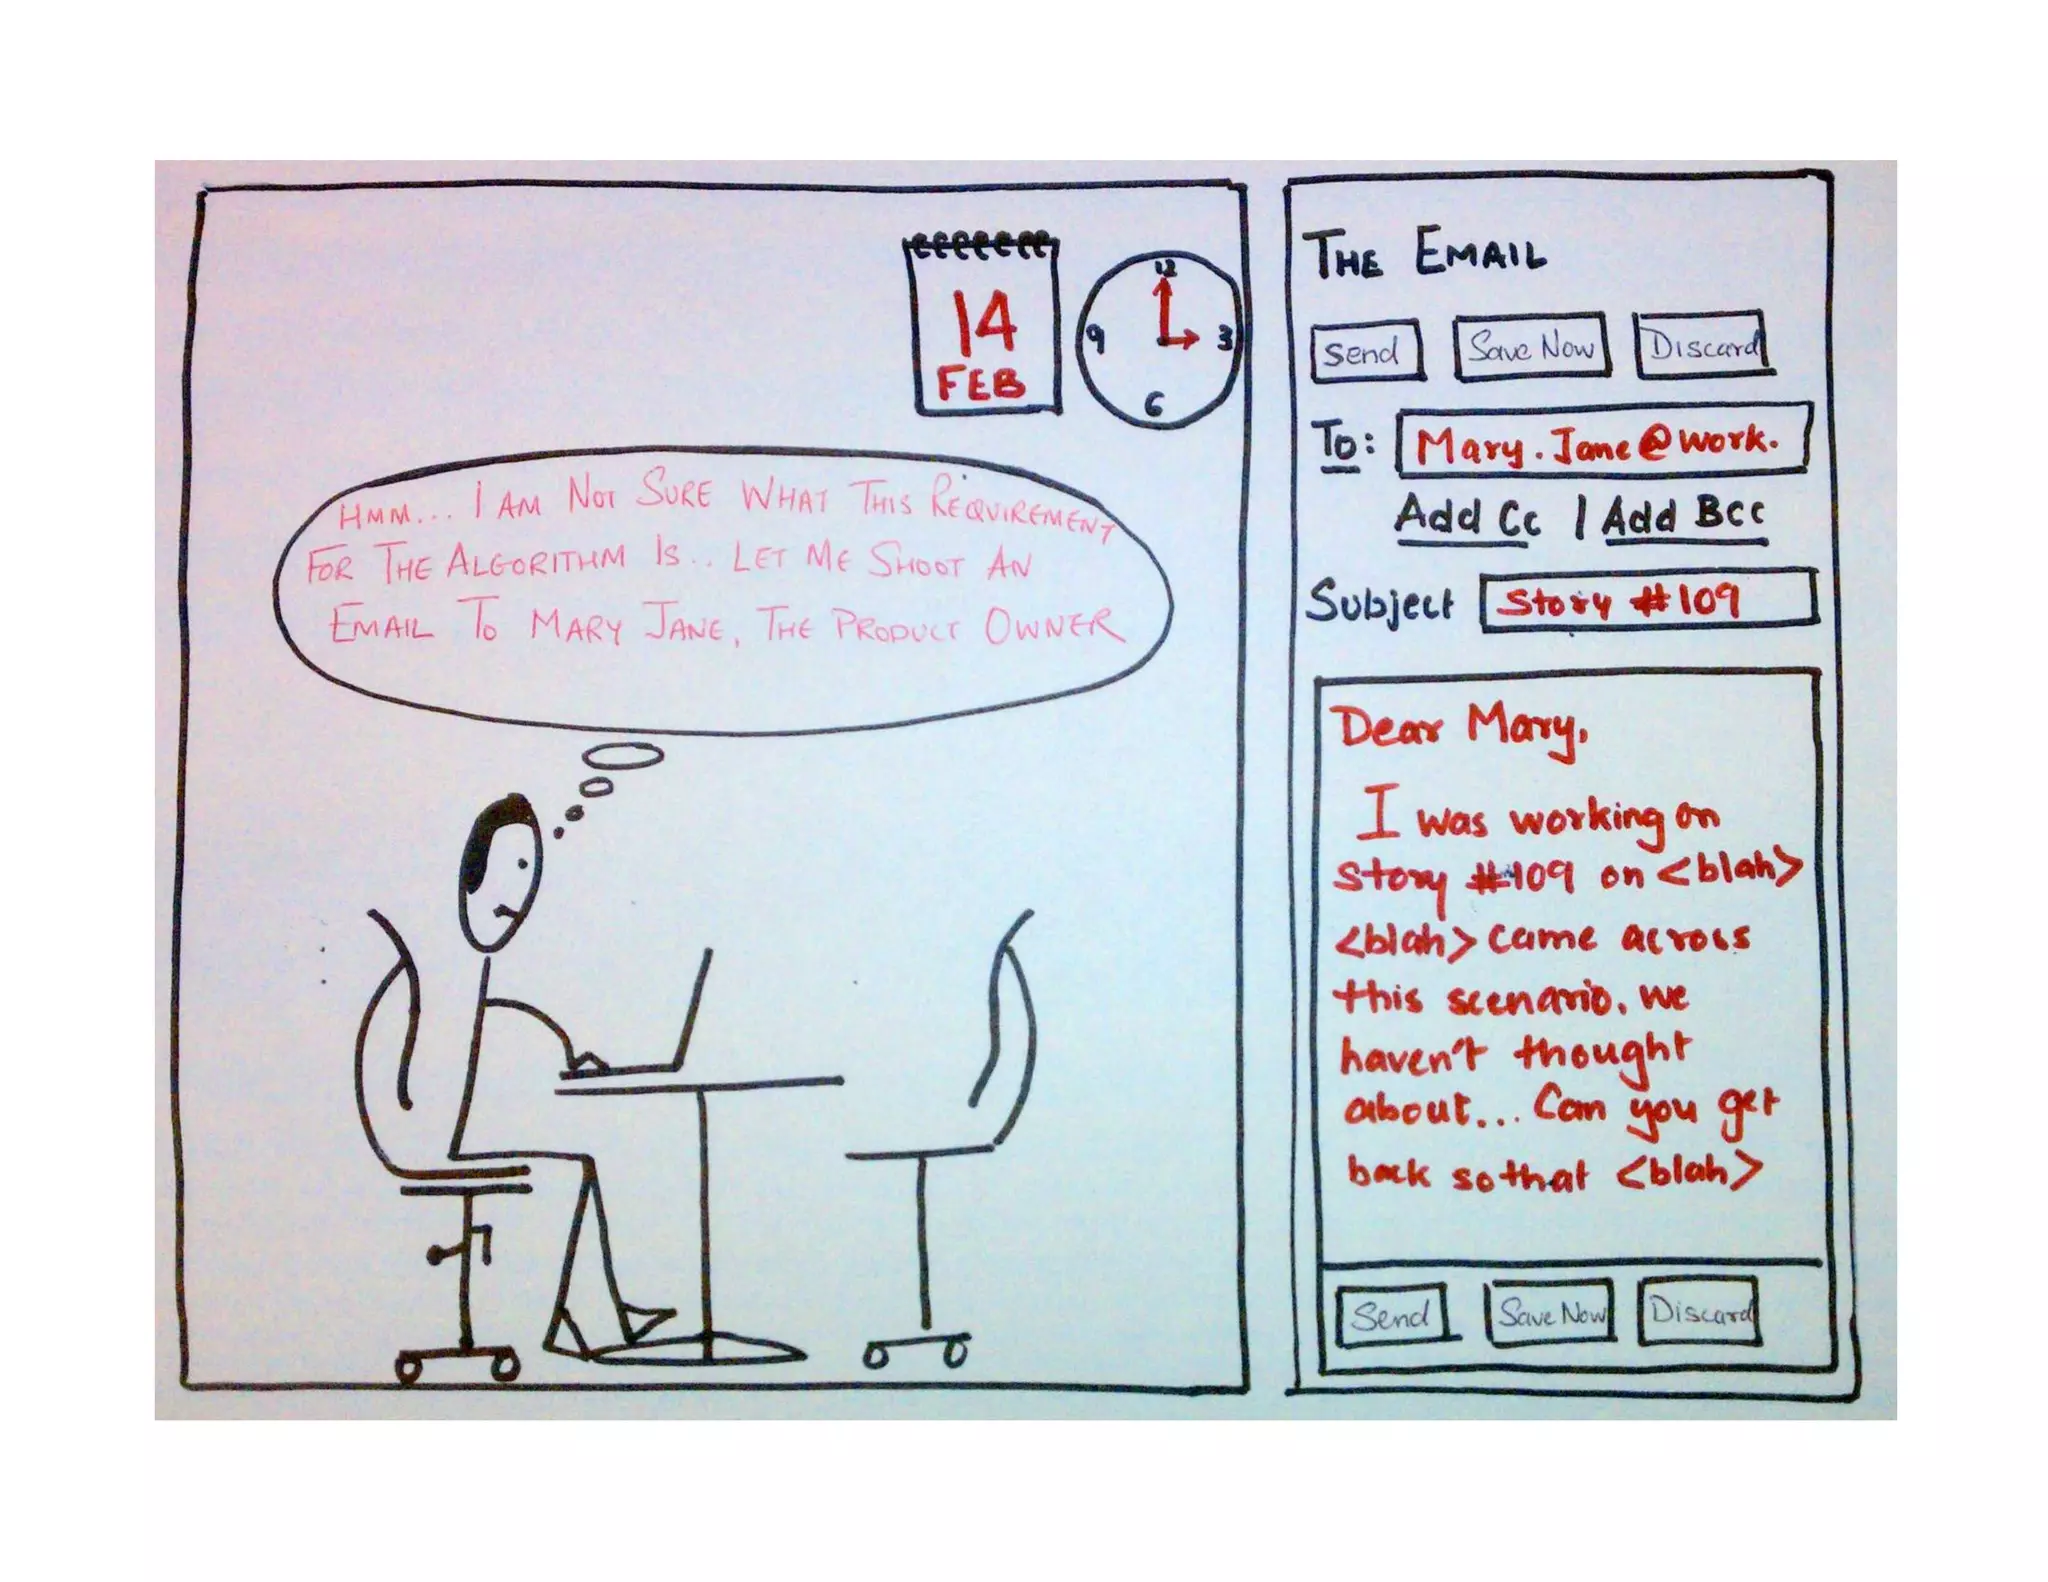 14
FEB
12
9
3
6
HMM... I AM NOT SURE WHAT THIS REQUIREMENT
FOR THE ALGORITHM IS.. LET ME SHOOT AN
EMAIL TO MARY JANE, THE PRODUCT OWNER
THE EMAIL
Send
Save Now
Discard
To: Mary.Jane@work.
Add Cc | Add Bcc
Subject Story #109
Dear Mary,
I was working on
story #109 on <blah>
<blah> came across
this scenario. we
haven't thought
about... Can you get
back so that <blah>
Send
Save Now
Discard